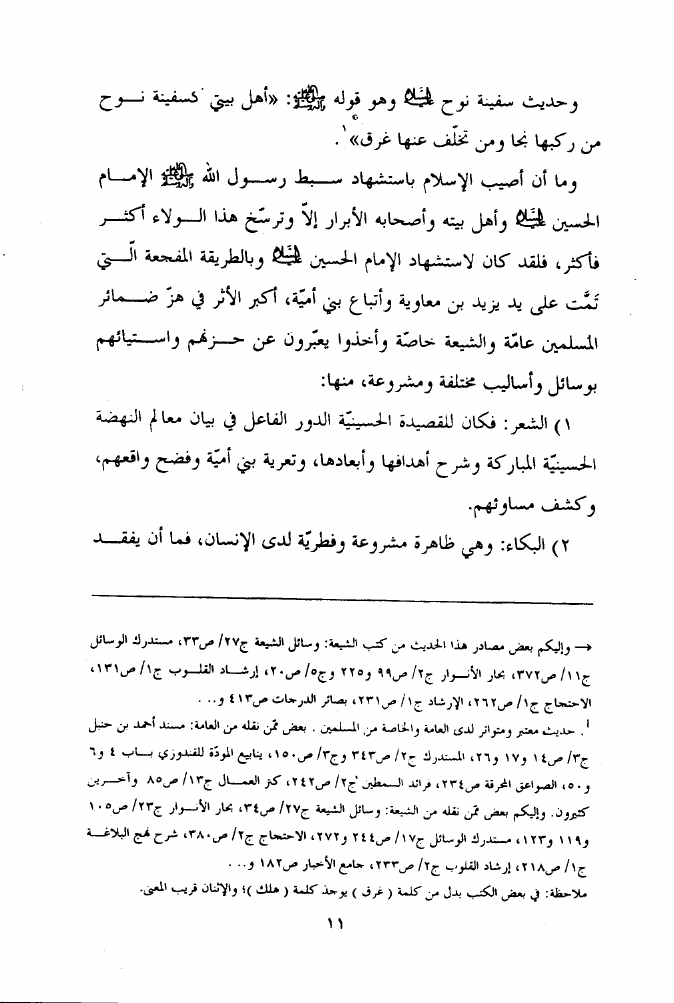 وحديث سفينة نوح ﷺ وهو قوله ﷺ: «أهل بيتي كسفينة نــوح
من ركبها نجا ومن تخلّف عنها غرق»¹.
وما أن أصيب الإسلام باستشهاد سبط رسول الله ﷺ الإمام
الحسين وأهل بيته وأصحابه الأبرار إلاّ وترسّخ هذا الولاء أكثر
فأكثر، فلقد كان لاستشهاد الإمام الحسين وبالطريقة المفجعة الّتي
تَمَّت على يد يزيد بن معاوية وأتباع بني أميّة، أكبر الأثر في هزّ ضمائر
المسلمين عامّة والشيعة خاصّة وأخذوا يعبّرون عن حزنهم واستيائهم
بوسائل وأساليب مختلفة ومشروعة، منها:
١) الشعر: فكان للقصيدة الحسينيّة الدور الفاعل في بيان معالم النهضة
الحسينيّة المباركة وشرح أهدافها وأبعادها، وتعرية بني أميّة وفضح واقعهم،
وكشف مساوئهم.
٢) البكاء: وهي ظاهرة مشروعة وفطريّة لدى الإنسان، فما أن يفقد
→ وإليكم بعض مصادر هذا الحديث من كتب الشيعة: وسائل الشيعة ج٢٧/ ص٣٣، مستدرك الوسائل
ج١١/ ص٣٧٢، بحار الأنوار ج٢/ ص٩٩ و٢٢٥ وج٥/ ص٢٠، إرشاد القلوب ج١/ ص١٣١،
الاحتجاج ج١/ ص٢٦٢، الإرشاد ج١/ ص٢٣١، بصائر الدرجات ص٤١٣ و...
¹. حديث معتبر ومتواتر لدى العامة والخاصة من المسلمين. بعض ممّن نقله من العامة: مسند أحمد بن حنبل
ج٣/ ص١٤ و١٧ و٢٦، المستدرك ج٢/ ص٣٤٣ وج٣/ ص١٥٠، ينابيع المودّة للقندوزي باب ٤ و٦
و٥٠، الصواعق المحرقة ص٢٣٤، فرائد السمطين ج٢/ ص٢٤٢، كنز العمال ج١٣/ ص٨٥ وآخرين
كثيرون. وإليكم بعض ممّن نقله من الشيعة: وسائل الشيعة ج٢٧/ ص٣٤، بحار الأنوار ج٢٣/ ص١٠٥
و١١٩ و١٢٣، مستدرك الوسائل ج١٧/ ص٢٤٤ و٢٧٢، الاحتجاج ج٢/ ص٣٨٠، شرح نهج البلاغة
ج١/ ص٢١٨، إرشاد القلوب ج٢/ ص٢٣٣، جامع الأخبار ص١٨٢ و...
ملاحظة: في بعض الكتب بدل من كلمة ( غرق ) يوجد كلمة ( هلك )؛ والإثنان قريب المعنى.
١١